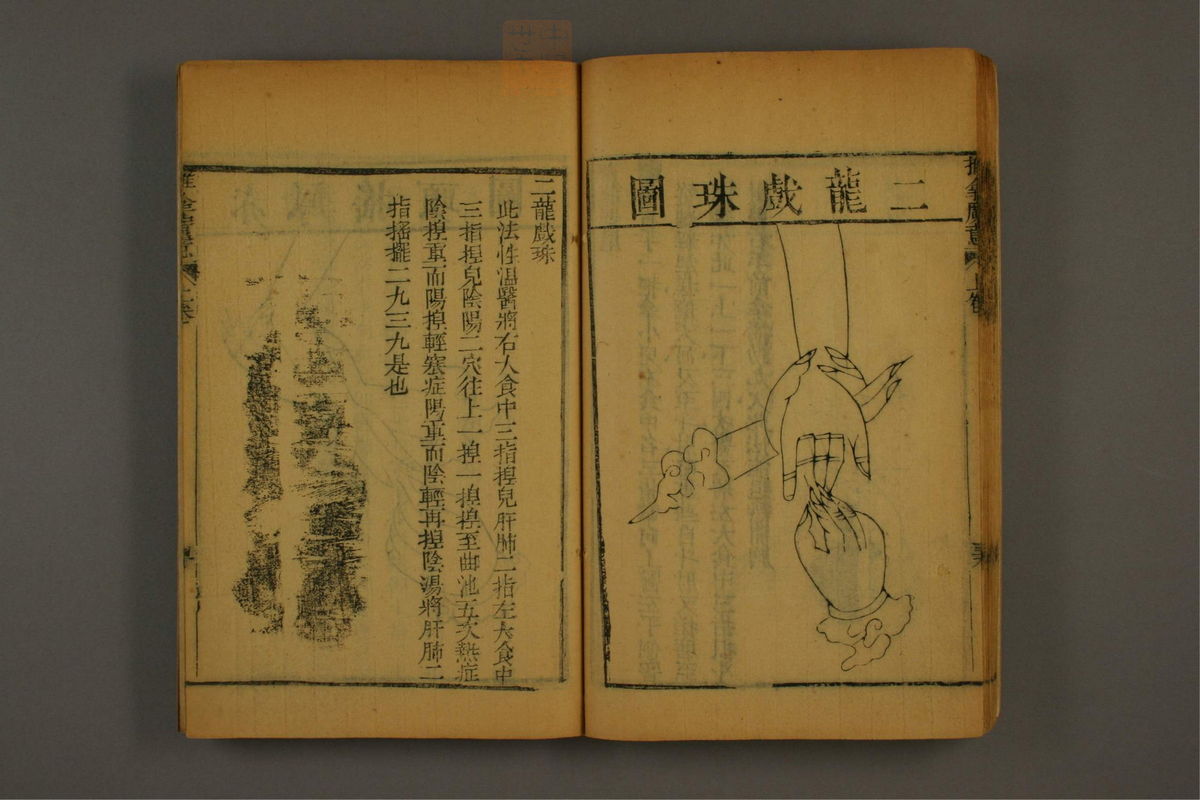 二龍戲珠圖
二龍戲珠
此法性溫醫將右大食中三指揑兒肝肺二指左大食中
三指揑兒陰陽二穴往上一揑一揑揑至曲池五次熱症
陰揑重而陽揑輕寒症陽重而陰輕再揑陰湯將肝肺二
指搖擺二九三九是也